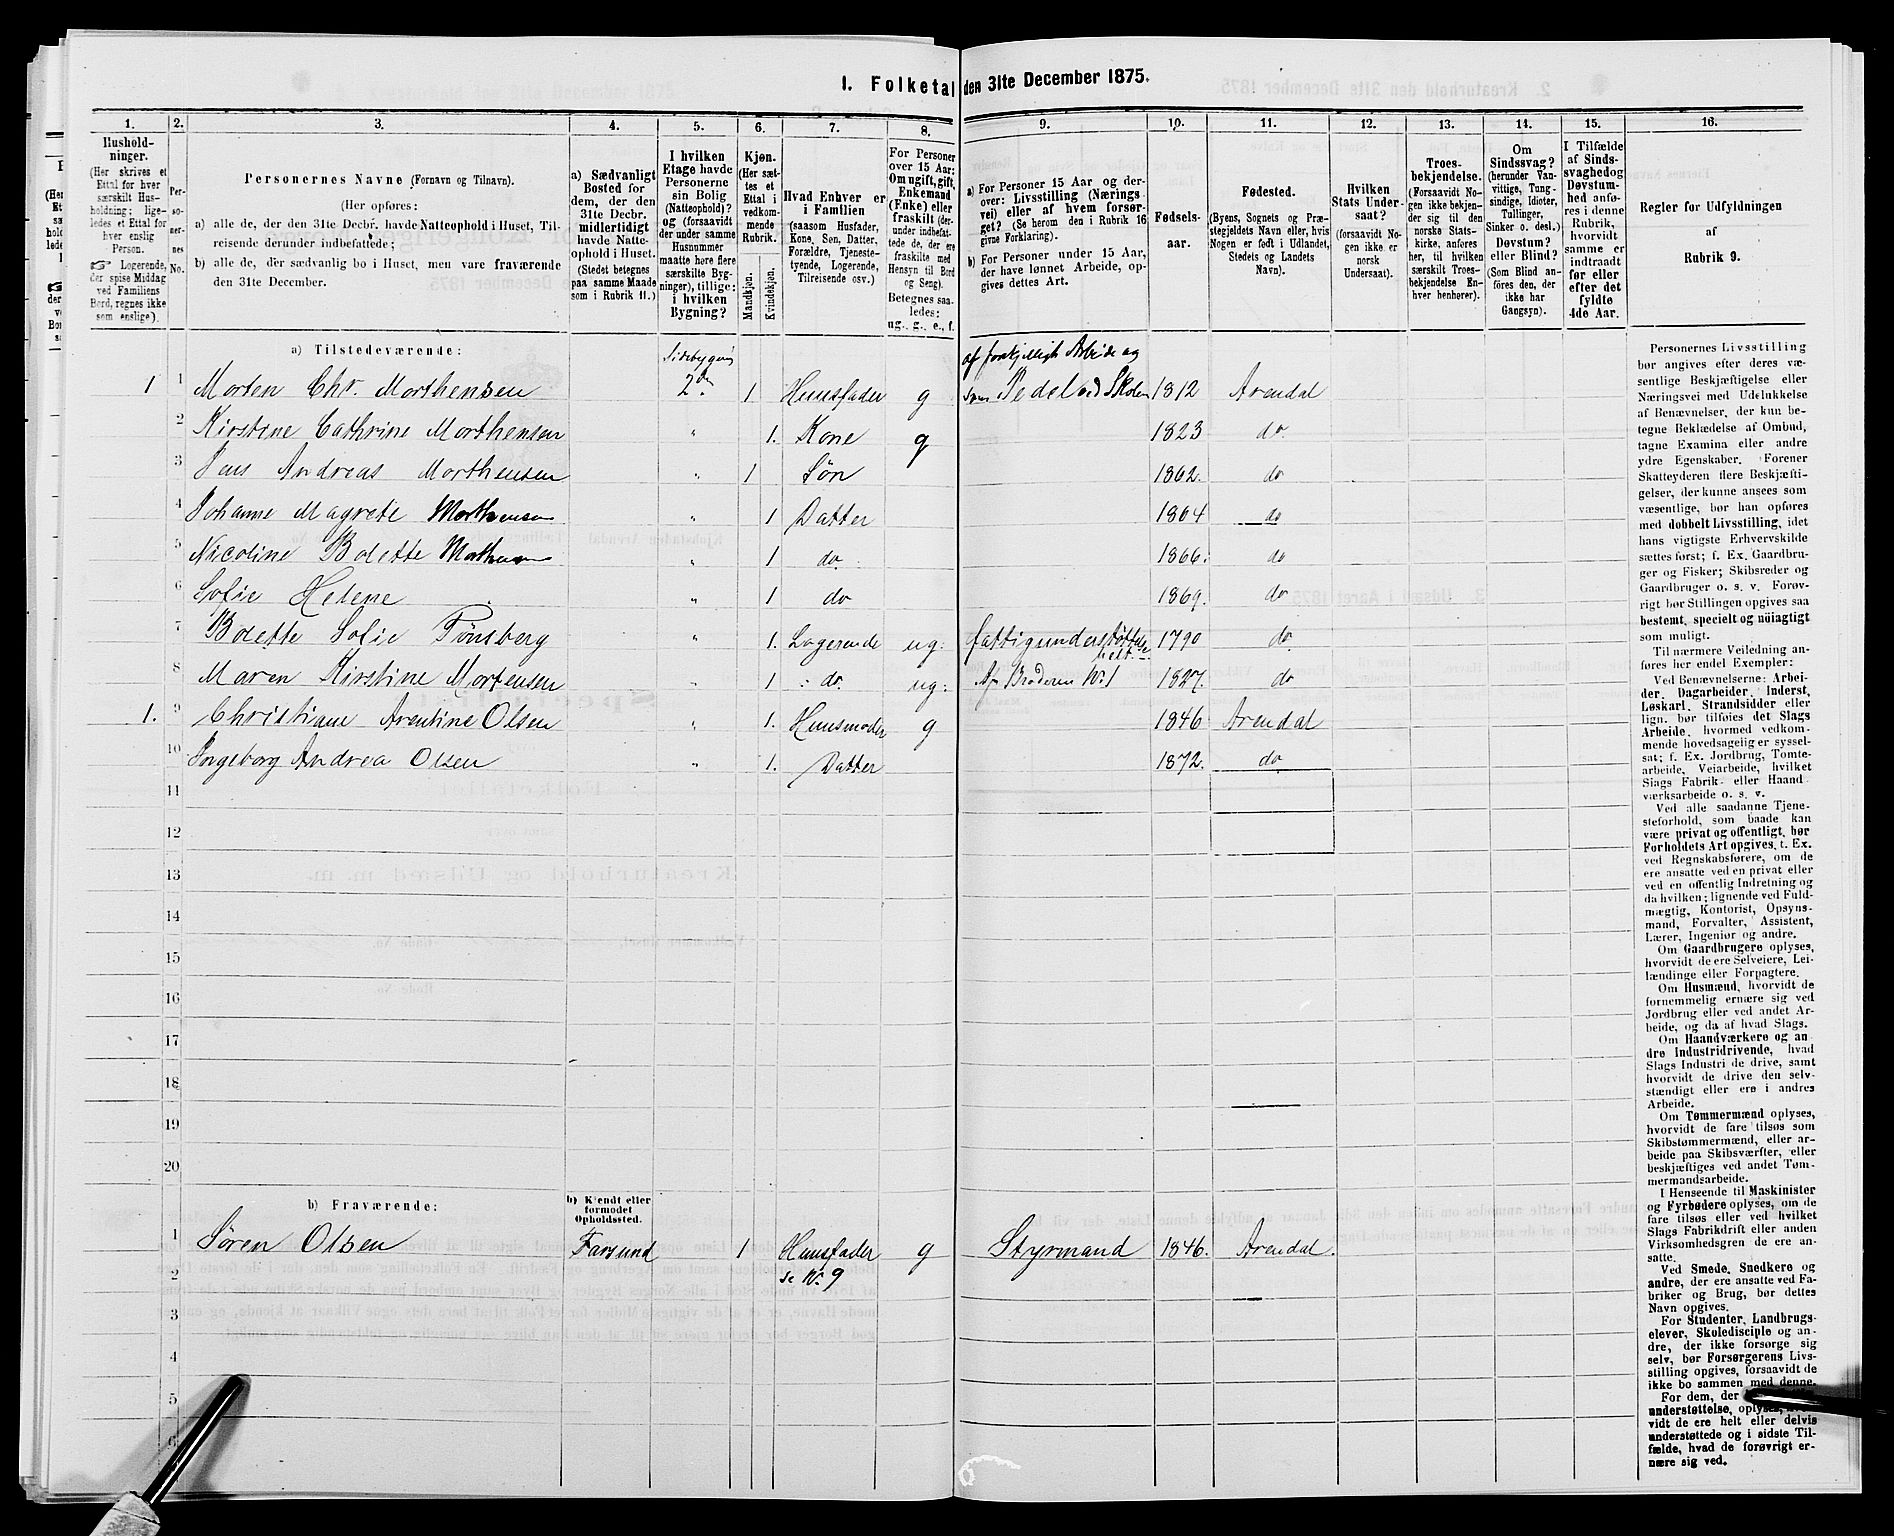 1. Folketal den 31te December 1875.
1. 2. 3. 4. 5. 6. 7. 8. 9. 10. 11. 12. 13. 14. 15. 16.
Hushold-
ninger.
(Her skrives et
Ettal for hver
særskilt Hus-
holdning; lige-
ledes et Ettal for
hver enslig
Person.
☞ Logerende,
der spise Middag
ved Familiens
Bord, regnes ikke
som enslige).
Per-
so-
ner-
nes
No.
Personernes Navne (Fornavn og Tilnavn).
(Her opføres:
a) alle de, der den 31te Decbr. havde Natteophold i Huset, Til-
reisende derunder indbefattede;
b) alle de, der sædvanlig bo i Huset, men vare fraværende
den 31te December.
a) Sædvanligt
Bosted for
dem, der den
31te Decbr.
midlertidigt
havde Natte-
ophold i Huset.
(Stedet betegnes
paa samme Maade
som i Rubrik 11.)
I hvilken
Etage havde
Personerne
sin Bolig
(Natteophold)?
og (forsaavidt
der under samme
Husnummer
maatte høre flere
særskilte Byg-
ninger), tillige:
i hvilken
Bygning?
Kjøn.
(Her sæt-
tes et
Ettal i
vedkom-
mende
Rubrik.
Mandkjøn.
Kvindekjøn.
Hvad Enhver er
i Familien
(saasom Husfader,
Kone, Søn, Datter,
Forældre, Tjeneste-
tyende, Logerende,
Tilreisende osv.)
For Personer
over 15 Aar:
Om ugift, gift,
Enkemand
(Enke) eller
fraskilt (der-
under indbefat-
tede de, der ere
fraskilte med
Hensyn til Bord
og Seng).
Betegnes saa-
ledes:
ug., g., e., f.
a) For Personer 15 Aar og der-
over: Livsstilling (Nærings-
vei) eller af hvem forsør-
get? (Se herom den i Rubrik 16
givne Forklaring).
b) For Personer under 15 Aar,
der have lønnet Arbeide, op-
gives dettes Art.
Fødsels-
aar.
Fødested.
(Byens, Sognets og Præ-
stegjeldets Navn eller, hvis
Nogen er født i Udlandet,
Stedets og Landets
Navn).
Hvilken
Stats Under-
saat?
(forsaavidt No-
gen ikke er
norsk
Undersaat).
Troes-
bekjendelse.
(Forsaavidt No-
gen ikke bekjen-
der sig til den
norske Stats-
kirke, anføres
her, til hvilken
særskilt Troes-
bekjendelse En-
hver henhører).
Om
Sindssvag?
(herunder Van-
vittige, Tung-
sindige, Idioter,
Tullinger,
Sinker o. desl.)
Døvstum?
eller Blind?
(Som Blind an-
føres den, der
ikke har
Gangsyn).
I Tilfælde
af Sinds-
svaghed og
Døvstum-
hed anfø-
res i denne
Rubrik,
hvorvidt
samme er
indtraadt
før eller
efter det
fyldte
4de Aar.
Regler for Udfyldningen
af
Rubrik 9.
a) Tilstedeværende:
Sidebygning af forskjelligt Arbeide og
1 1 Morten Chr. Morthensen 2den 1 Huusfader g som Pedel ved Skolen 1812 Arendal
2 Kirstine Cathrine Morthensen " 1. Kone g 1823 do.
3 Jens Andreas Morthensen " 1 Søn 1862. do
4 Johanne Magrete Morthensen " 1 Datter 1864 do
5 Nicoline Bolette Morthensen " 1 do. 1866. do
6 Sofie Helene " 1 do 1869. do
7 Bolette Sofie Tønsberg " 1. Logerende ug: fattigunderstøttelse helt 1790 do
8 Maren Kirstine Mortensen " 1 do. ug: Af Broderen No. 1 1827. do
1. 9 Christiane Arentine Olsen " 1. Huusmoder g 1846 Arendal
10 Ingeborg Andrea Olsen " 1. Datter 1872. do
11
12
13
14
15
16
17
18
19
20
b) Fraværende:
b) Kjendt eller
formodet
Opholdssted.
1 Søren Olsen Farsund 1 Huusfader g Styrmand 1846. Arendal.
2 se No. 9
3
4
5
6
Personernes Livsstilling
bør angives efter deres væ-
sentlige Beskjæftigelse eller
Næringsvei med Udelukkelse
af Benævnelser, der kun be-
tegne Beklædelse af Ombud,
tagne Examina eller andre
ydre Egenskaber. Forener
Skatteyderen flere Beskjæfti-
gelser, der kunne ansees som
væsentlige, bør han opføres
med dobbelt Livsstilling, idet
hans vigtigste Erhvervskilde
sættes først; f. Ex. Gaardbru-
ger og Fisker; Skibsreder og
Gaardbruger o. s. v. Forøv-
rigt bør Stillingen opgives saa
bestemt, specielt og nøiagtigt
som muligt.
Til nærmere Veiledning an-
føres her endel Exempler:
Ved Benævnelserne: Arbei-
der, Dagarbeider, Inderst,
Løskarl, Strandsidder eller
lign. bør tilføies det Slags
Arbeide, hvormed vedkom-
mende hovedsagelig er syssel-
sat; f. Ex. Jordbrug, Tomte-
arbeide, Veiarbeide, hvilket
Slags Fabrik- eller Haand
værksarbeide o. s. v.
Ved alle saadanne Tjene-
steforhold, som baade kan
være privat og offentligt, bør
Forholdets Art opgives, t. Ex.
ved Regnskabsførere, om de
ere ansatte ved en privat eller
ved en offentlig Indretning og
da hvilken; lignende ved Fuld-
mægtig, Kontorist, Opsyns-
mand, Forvalter, Assistent,
Lærer, Ingeniør og andre.
Om Gaardbrugere oplyses,
hvorvidt de ere Selveiere, Lei-
lændinge eller Forpagtere.
Om Husmænd, hvorvidt de
fornemmelig ernære sig ved
Jordbrug eller ved andet Ar-
beide, og da af hvad Slags.
Om Haandværkere og an
dre Industridrivende, hvad
Slags Industri de drive, samt
hvorvidt de drive den selv-
stændigt eller ere i andres
Arbeide.
Om Tømmermænd oplyses,
hvorvidt de fare tilsøs som
Skibstømmermænd, eller ar-
beide paa Skibsværfter, eller
beskjæftiges ved andet Tøm-
mermandsarbeide.
I Henseende til Maskinister
og Fyrbødere oplyses, om de
fare tilsøs eller ved hvilket
Slags Fabrikdrift eller anden
Virksomhedsgren de ere an-
satte.
Ved Smede, Snedkere og
andre, der ere ansatte ved Fa-
briker og Brug, bør dettes
Navn opgives.
For Studenter, Landbrugs-
elever, Skoledisciple og an-
dre, der ikke forsørge sig
selv, bør Forsørgerens Livs-
stilling opgives, forsaavidt de
ikke bo sammen med denne.
For dem, der
understøttelse, oplyses,
vidt de ere helt eller delvis
understøttede og i sidste Til-
fælde, hvad de forøvrigt er-
nære sig ved.